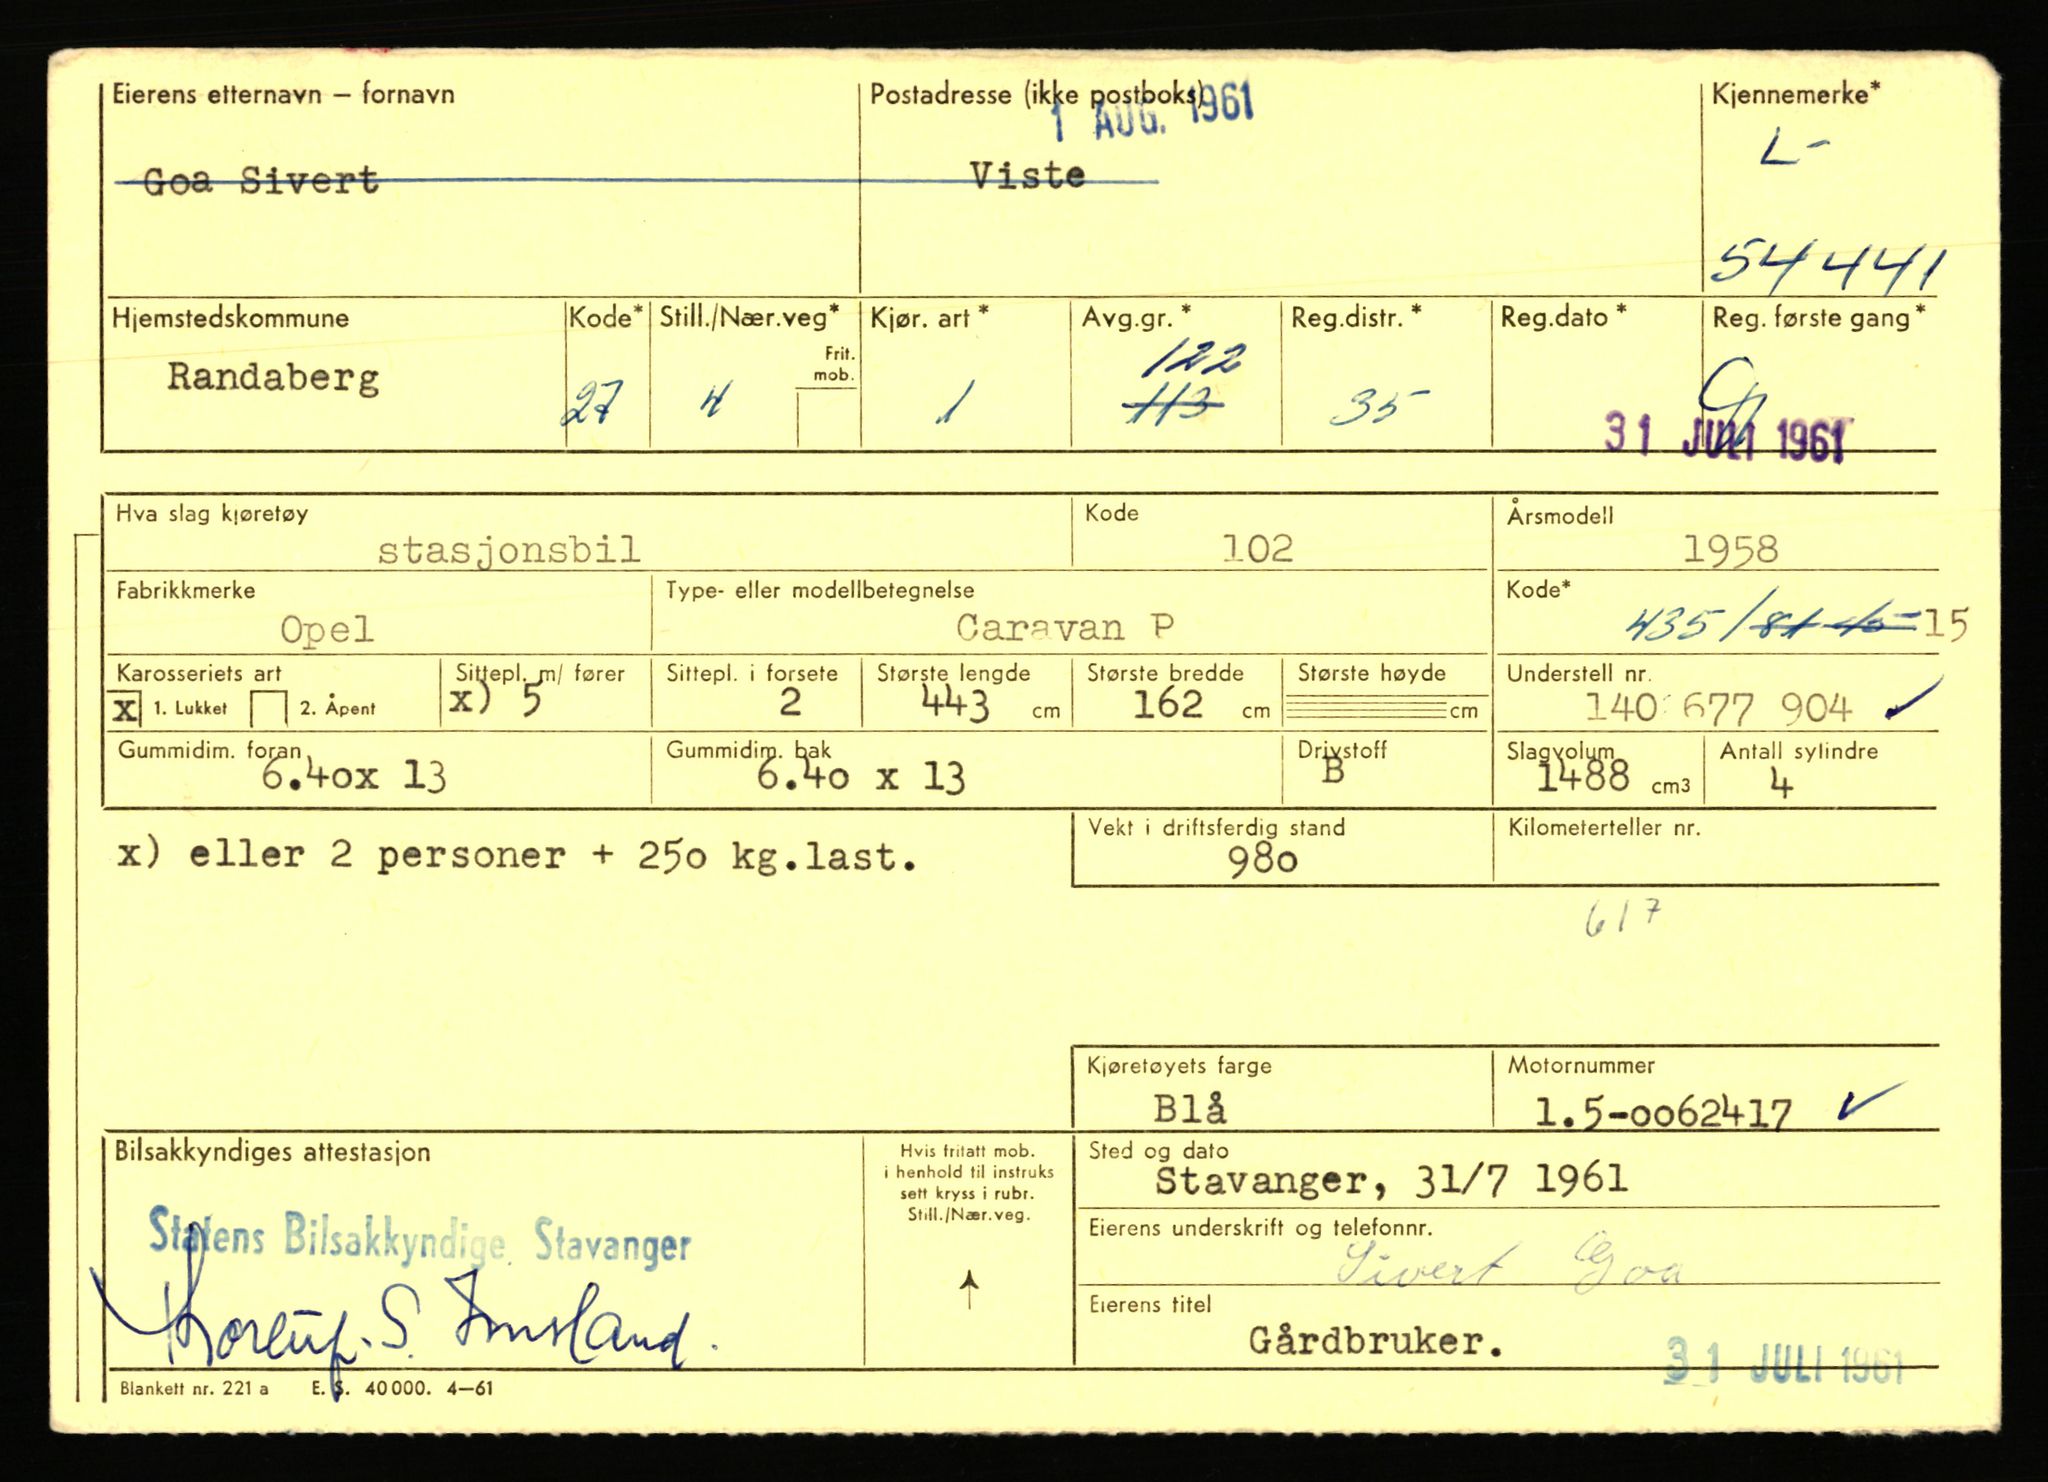 Eierens etternavn – fornavn
Postadresse (ikke postboks)
Kjennemerke*
1 AUG. 1961
L-
Goa Sivert
Viste
54441
Hjemstedskommune
Kode*
Still./Nær.veg*
Kjør. art *
Avg.gr. *
Reg.distr. *
Reg.dato *
Reg. første gang*
Frit.
mob.
122
Randaberg
27
4
1
113
35
31 JULI 1961
Hva slag kjøretøy
Kode
Årsmodell
stasjonsbil
102
1958
Fabrikkmerke
Type- eller modellbetegnelse
Kode*
Opel
Caravan P
435/
15
Karosseriets art
Sittepl. m/ fører
Sittepl. i forsete
Største lengde
Største bredde
Største høyde
Understell nr.
X 1. Lukket
2. Åpent
x) 5
2
443 cm
162 cm
cm
140 677 904 ✓
Gummidim. foran
Gummidim. bak
Drivstoff
Slagvolum
Antall sylindre
6.40x 13
6.40 x 13
B
1488 cm3
4
x) eller 2 personer + 250 kg.last.
Vekt i driftsferdig stand
Kilometerteller nr.
980
617
Kjøretøyets farge
Motornummer
Blå
1.5-0062417 ✓
Bilsakkyndiges attestasjon
Hvis fritatt mob.
i henhold til instruks
sett kryss i rubr.
Still./Nær.veg.
Sted og dato
Stavanger, 31/7 1961
Statens Bilsakkyndige, Stavanger
Eierens underskrift og telefonnr.
Sivert Goa
S. Imsland.
Eierens titel
Gårdbruker.
31 JULI 1961
Blankett nr. 221 a E. S. 40 000. 4–61